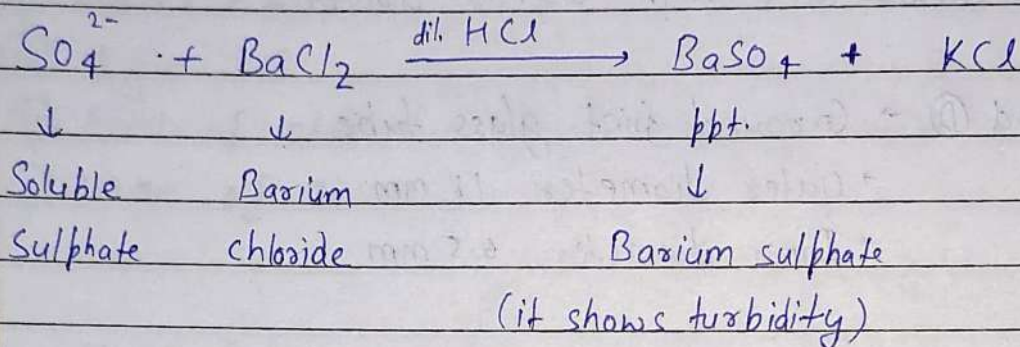 SO₄²⁻ + BaCl₂ —dil. HCl→ BaSO₄ + KCl
↓ ↓ ppt.
Soluble Barium ↓
Sulphate chloride Barium sulphate
(it shows turbidity)